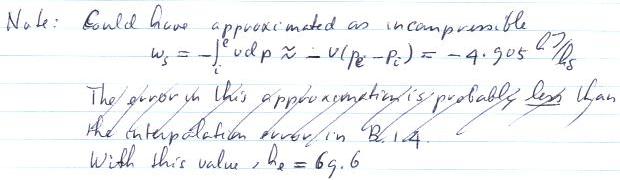 Note: Could have approximated as incompressible
w_s = -∫_i^e vdp ≈ -v(p_e - p_i) = -4.905 kJ/kg
The error in this approximation is probably less than
the interpolation error in B.1.4.
With this value, h_e = 69.6